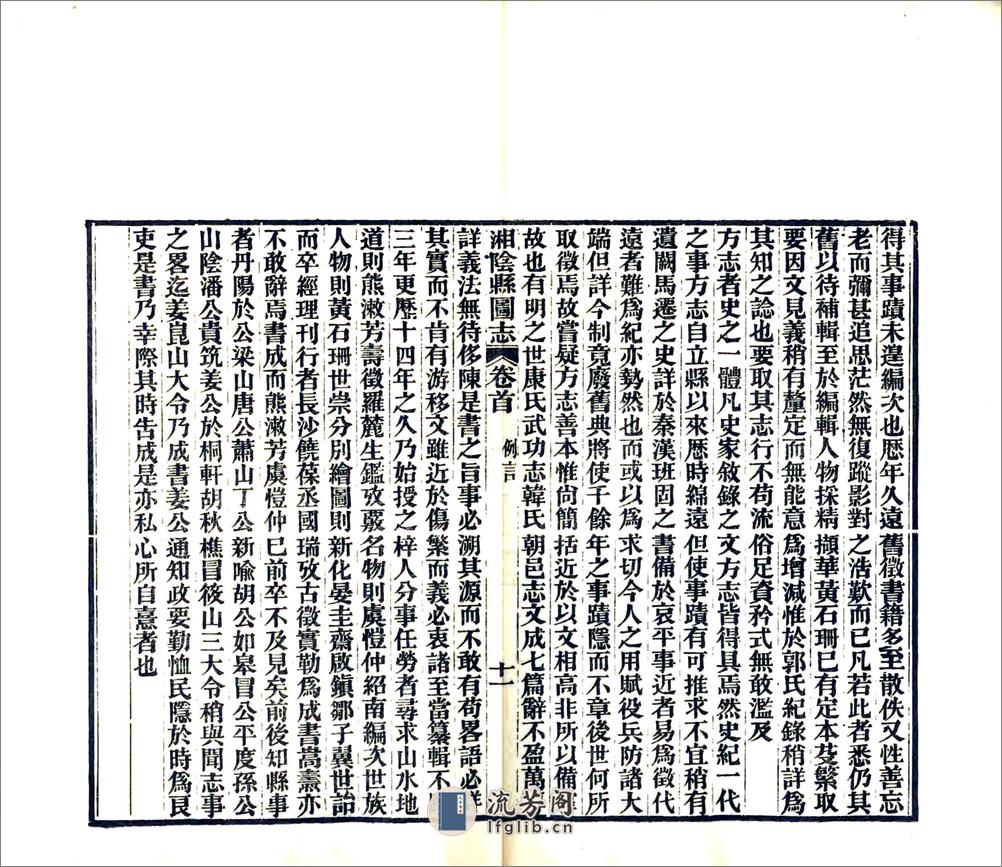 得其事蹟未遑編次也歷年久遠舊徵書籍多至散佚又性善忘
老而彌甚追思茫然無復蹤影對之浩歎而已凡若此者悉仍其
舊以待補輯至於編輯人物採精擷華黃石珊巳有定本芟繁取
要因文見義稍有釐定而無能意爲增減惟於郭氏紀錄稍詳爲
其知之諗也要取其志行不苟流俗足資矜式無敢濫及
方志者史之一體凡史家敘錄之文方志皆得具焉然史紀一代
之事方志自立縣以來歷時綿遠但使事蹟有可推求不宜稍有
遺闕馬遷之史詳於秦漢班固之書備於哀平事近者易爲徵代
遠者難爲紀亦勢然也而或以爲求切今人之用賦役兵防諸大
端但詳今制竟廢舊典將使千餘年之事蹟隱而不章後世何所
取徵焉故嘗疑方志善本惟尙簡括近於以文相高非所以備掌
故也有明之世康氏武功志韓氏朝邑志文成七篇辭不盈萬
湘陰縣圖志 卷首 例言 十一
詳義法無待侈陳是書之旨事必溯其源而不敢有苟畧語必詳
其實而不肯有游移文雖近於傷繁而義必衷諸至當纂輯不
三年更歷十四年之久乃始授之梓人分事任勞者尋求山水地
道則熊漱芳壽徵羅麓生鑑攷覈名物則虞愷仲紹南編次世族
人物則黃石珊世崇分別繪圖則新化晏圭齋啟鎭鄒子翼世詒
而卒經理刊行者長沙饒葆丞國瑞攷古徵實勒爲成書嵩燾亦
不敢辭焉書成而熊漱芳虞愷仲巳前卒不及見矣前後知縣事
者丹陽於公梁山唐公蕭山丁公新喩胡公如皋冒公平度孫公
山陰潘公貴筑姜公於桐軒胡秋樵冒筱山三大令稍與聞志事
之畧迄姜崑山大令乃成書姜公通知政要勤恤民隱於時爲良
吏是書乃幸際其時告成是亦私心所自憙者也
流芳阁
lfglib.cn